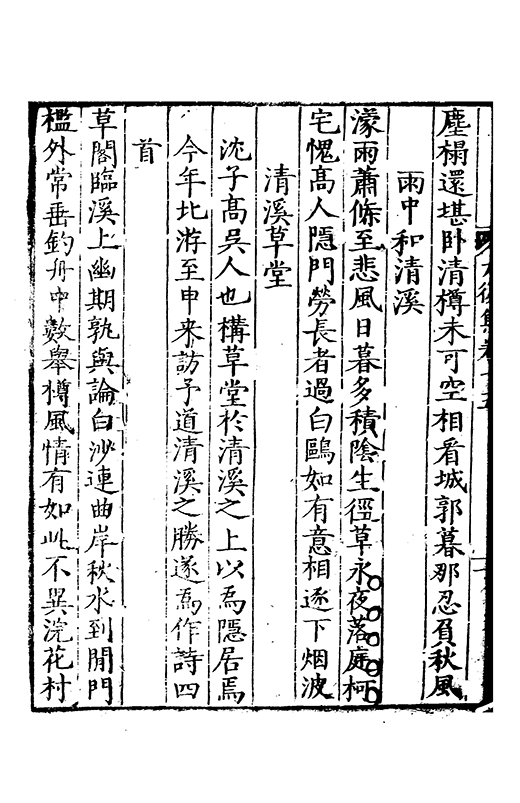 塵榻還堪卧清樽未可空相看城郭暮那忍負秋風
雨中和清溪
濛雨蕭條至悲風日暮多積陰生徑草永夜落庭柯
宅愧高人隱門勞長者過白鷗如有意相逐下烟波
清溪草堂
沈子高吳人也構草堂於清溪之上以爲隱居焉
今年北游至申来訪予道清溪之勝遂爲作詩四
首
草閣臨溪上幽期孰與論白沙連曲岸秋水到閒門
檻外常垂釣舟中數舉樽風情有如此不異浣花村